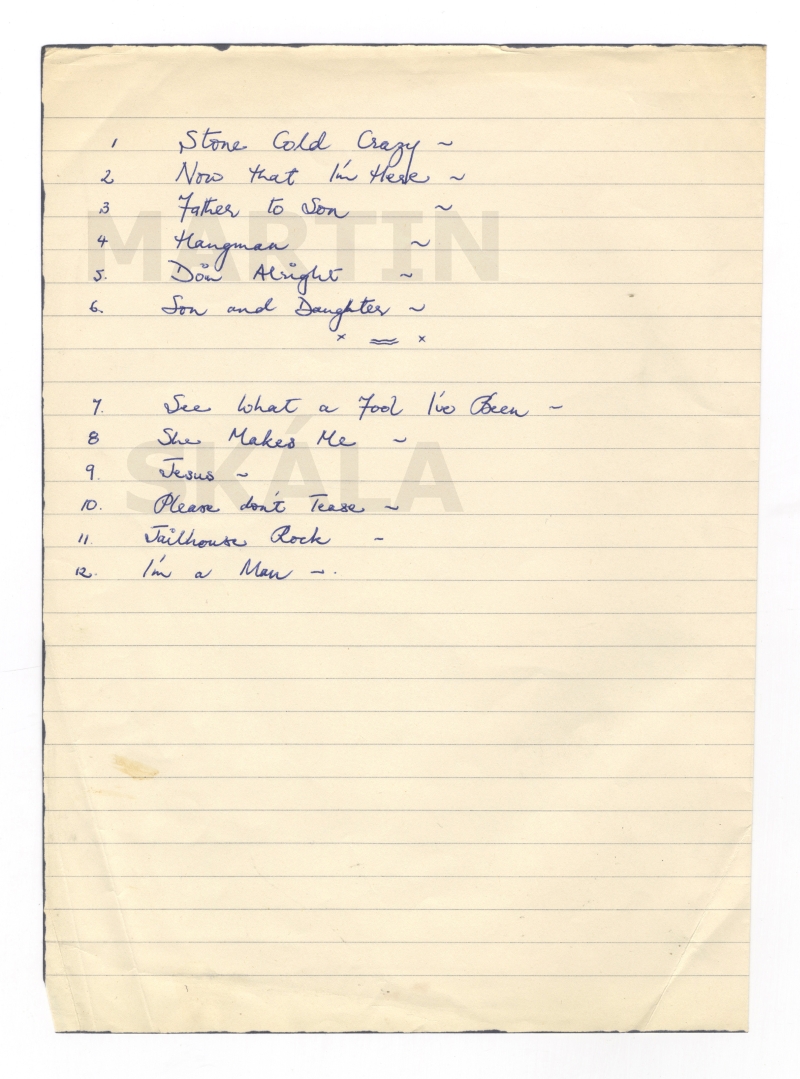 1 Stone Cold Crazy ~
2 Now that I'm Here ~
3 Father to Son ~
MARTIN
4 Hangman ~
5. Doin Alright ~
6. Son and Daughter ~
x = x
7. See What a Fool I've Been ~
8 She Makes Me ~
SKÁLA
9. Jesus ~
10. Please don't Tease ~
11. Jailhouse Rock ~
12. I'm a Man ~.